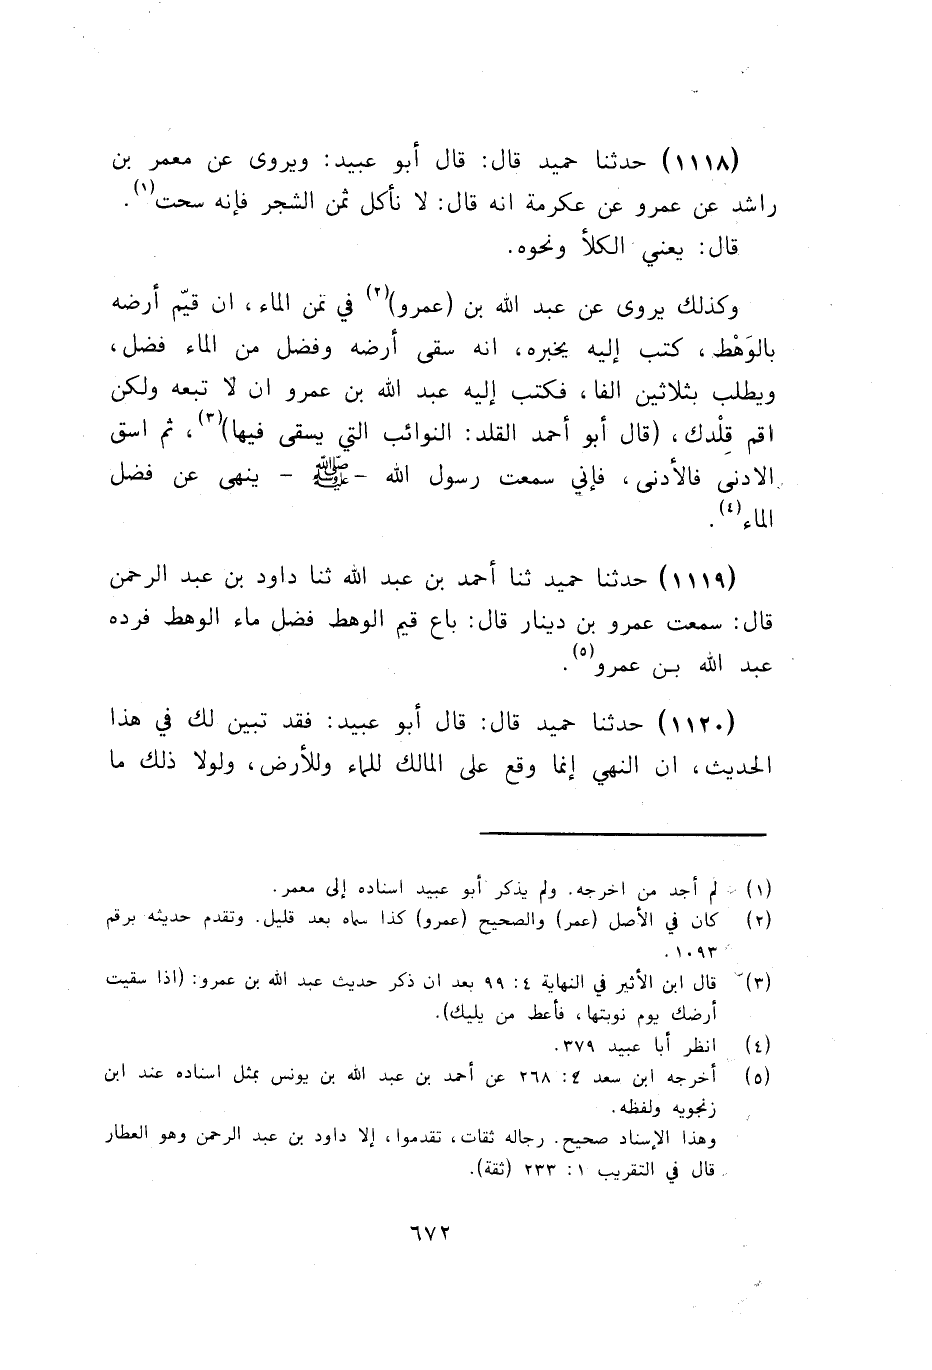 (١١١٨) حدثنا حميد قال: قال أبو عبيد: ويروى عن معمر بن
راشد عن عمرو عن عكرمة انه قال: لا نأكل ثمن الشجر فإنه سحت(١).
قال: يعني الكلأ ونحوه.
وكذلك يروى عن عبد الله بن (عمرو)(٢) في ثمن الماء، ان قيّم أرضه
بالوَهْط، كتب إليه يخبره، انه سقى أرضه وفضل من الماء فضل،
ويطلب بثلاثين الفا، فكتب إليه عبد الله بن عمرو ان لا تبعه ولكن
اقم قِلْدك، (قال أبو أحمد القلد: النوائب التي يسقى فيها)(٣)، ثم اسق
الادنى فالأدنى، فإني سمعت رسول الله -ﷺ- ينهى عن فضل
الماء(٤).
(١١١٩) حدثنا حميد ثنا أحمد بن عبد الله ثنا داود بن عبد الرحمن
قال: سمعت عمرو بن دينار قال: باع قيم الوهط فضل ماء الوهط فرده
عبد الله بن عمرو(٥).
(١١٢٠) حدثنا حميد قال: قال أبو عبيد: فقد تبين لك في هذا
الحديث، ان النهي إنما وقع على المالك للماء وللأرض، ولولا ذلك ما
(١) لم أجد من اخرجه. ولم يذكر أبو عبيد اسناده إلى معمر.
(٢) كان في الأصل (عمر) والصحيح (عمرو) كذا سماه بعد قليل. وتقدم حديثه برقم
١٠٩٣.
(٣) قال ابن الأثير في النهاية ٤: ٩٩ بعد ان ذكر حديث عبد الله بن عمرو: (اذا سقيت
أرضك يوم نوبتها، فأعط من يليك).
(٤) انظر أبا عبيد ٣٧٩.
(٥) أخرجه ابن سعد ٤: ٢٦٨ عن أحمد بن عبد الله بن يونس بمثل اسناده عند ابن
زنجويه ولفظه.
وهذا الإسناد صحيح. رجاله ثقات، تقدموا، إلا داود بن عبد الرحمن وهو العطار
قال في التقريب ١: ٢٣٣ (ثقة).
٦٧٢